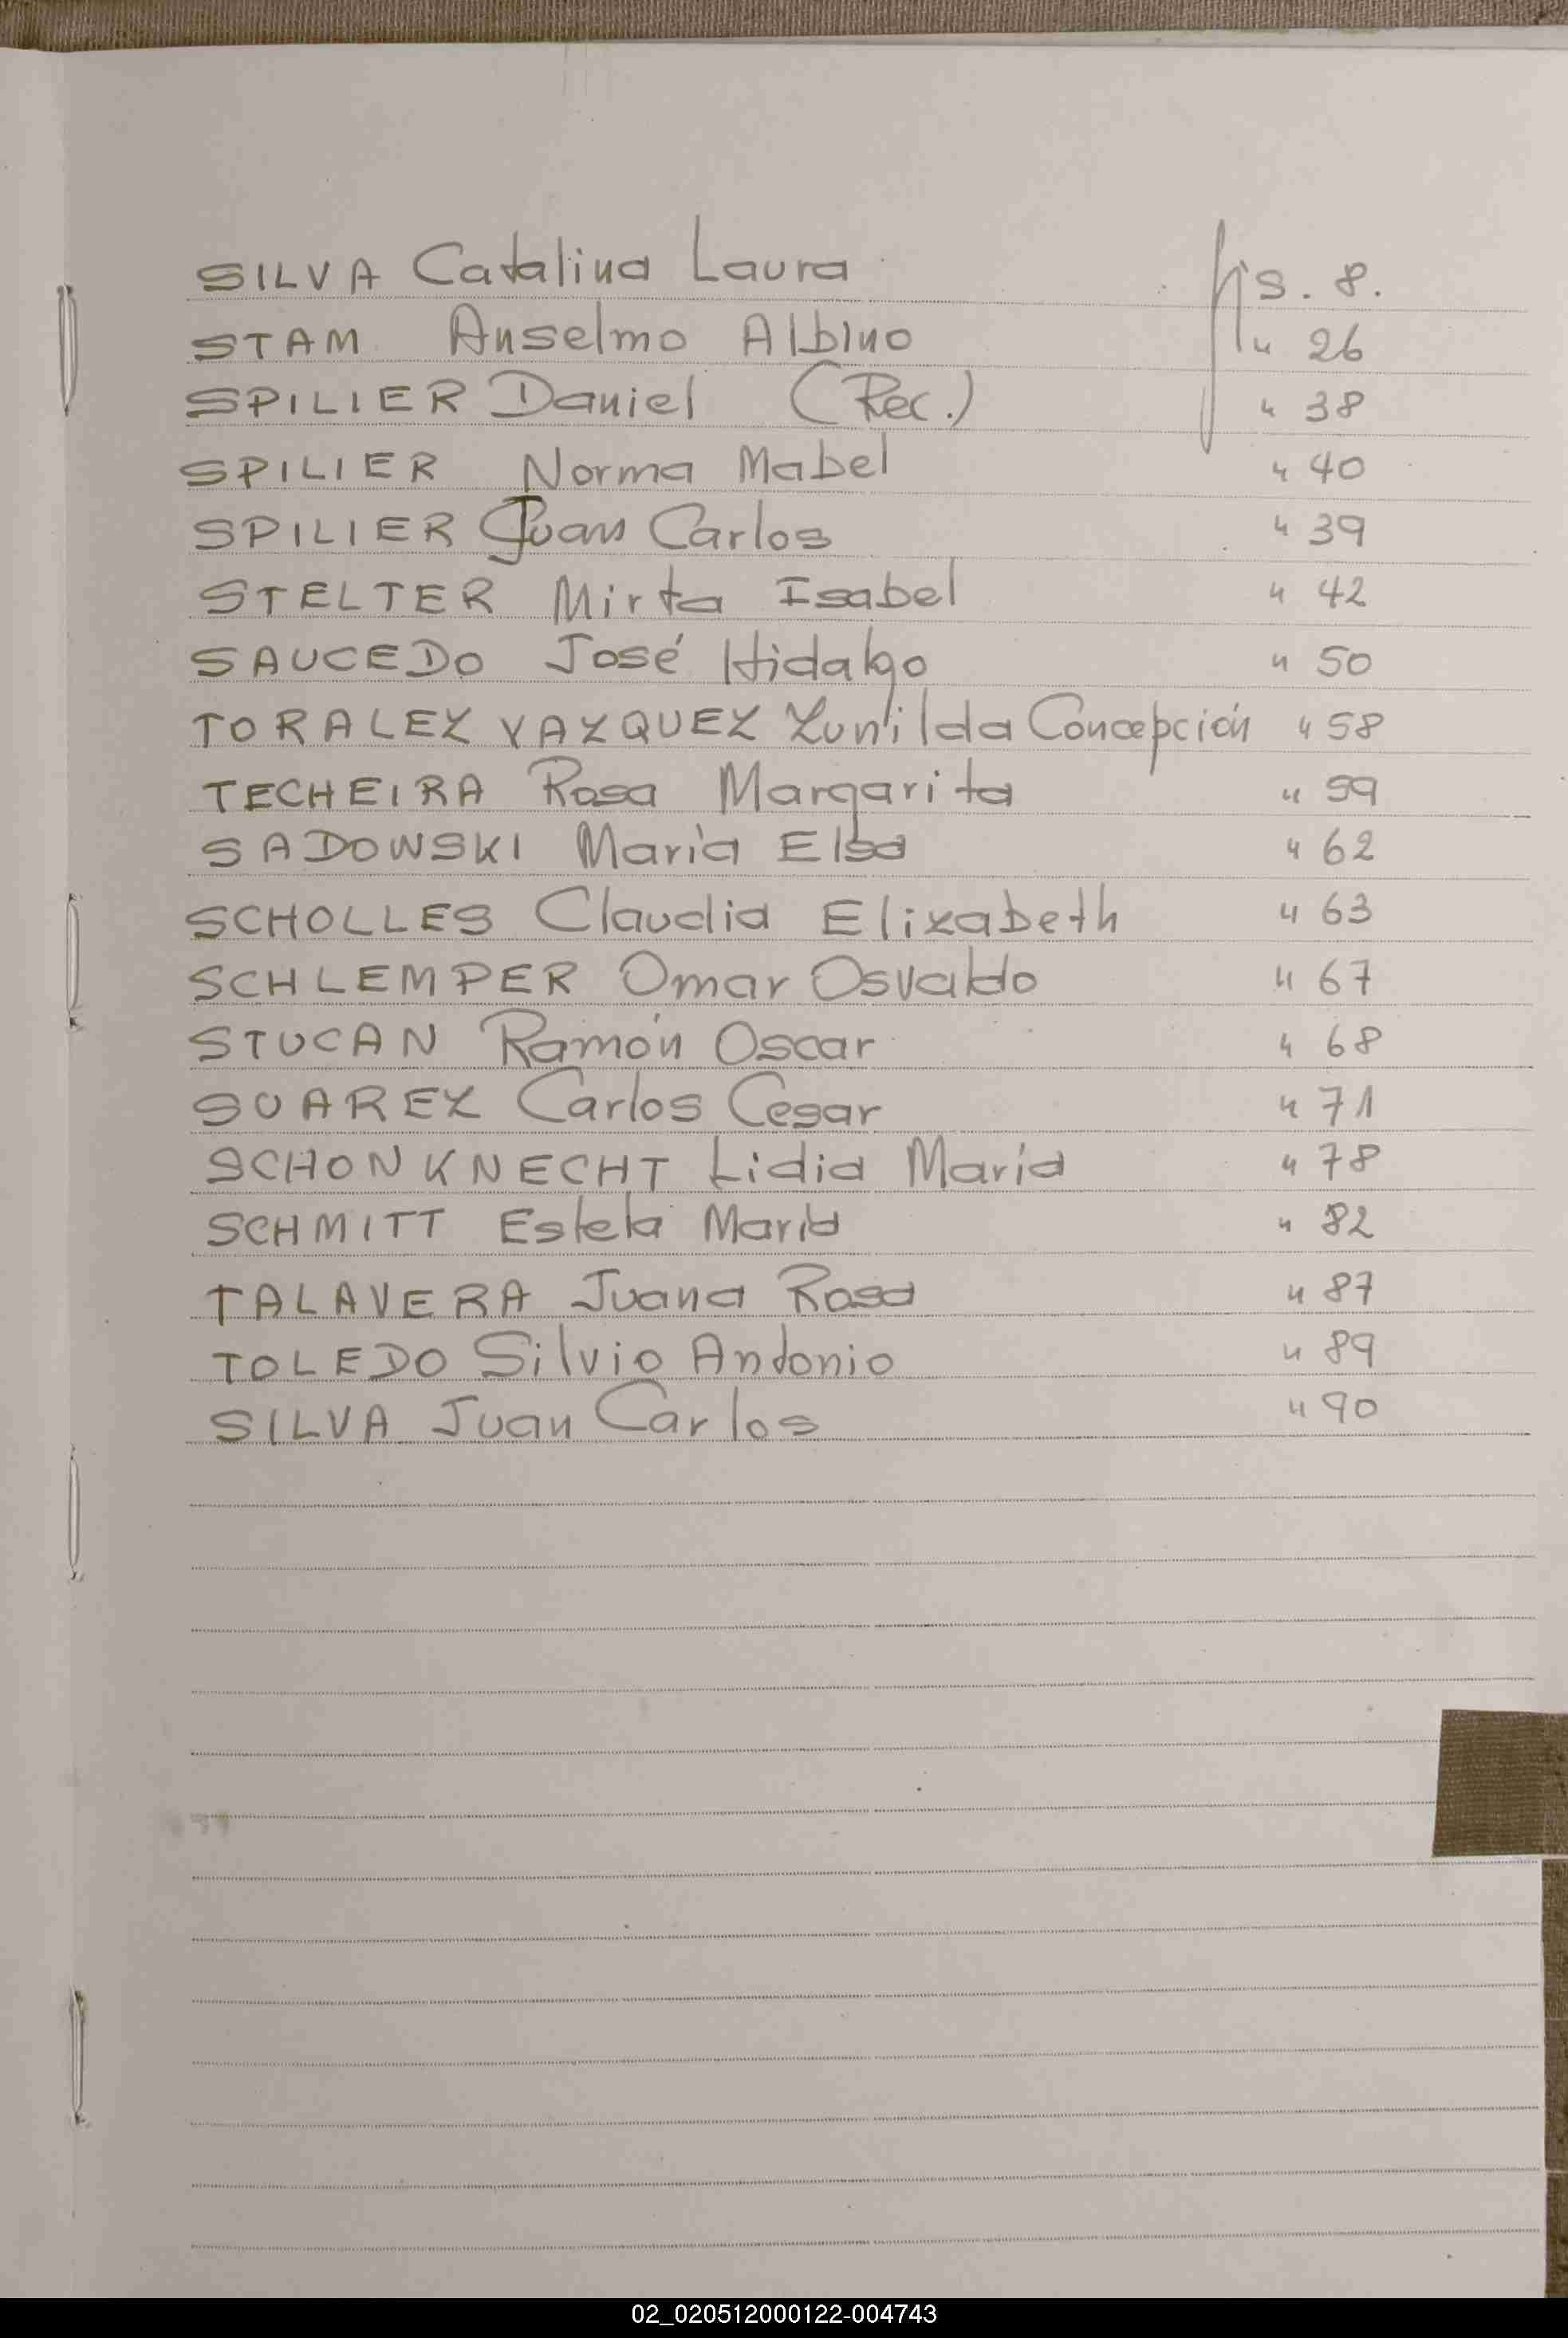 SILVA Catalina Laura fjs. 8.
STAM Anselmo Albino " 26
SPILIER Daniel (Rec.) " 38
SPILIER Norma Mabel " 40
SPILIER Juan Carlos " 39
STELTER Mirta Isabel " 42
SAUCEDO José Hidalgo " 50
TORALEZ VAZQUEZ Zunilda Concepción " 58
TECHEIRA Rosa Margarita " 59
SADOWSKI María Elsa " 62
SCHOLLES Claudia Elizabeth " 63
SCHLEMPER Omar Osvaldo " 67
STUCAN Ramón Oscar " 68
SUAREZ Carlos Cesar " 71
SCHONKNECHT Lidia María " 78
SCHMITT Estela María " 82
TALAVERA Juana Rosa " 87
TOLEDO Silvio Antonio " 89
SILVA Juan Carlos " 90
02_020512000122-004743